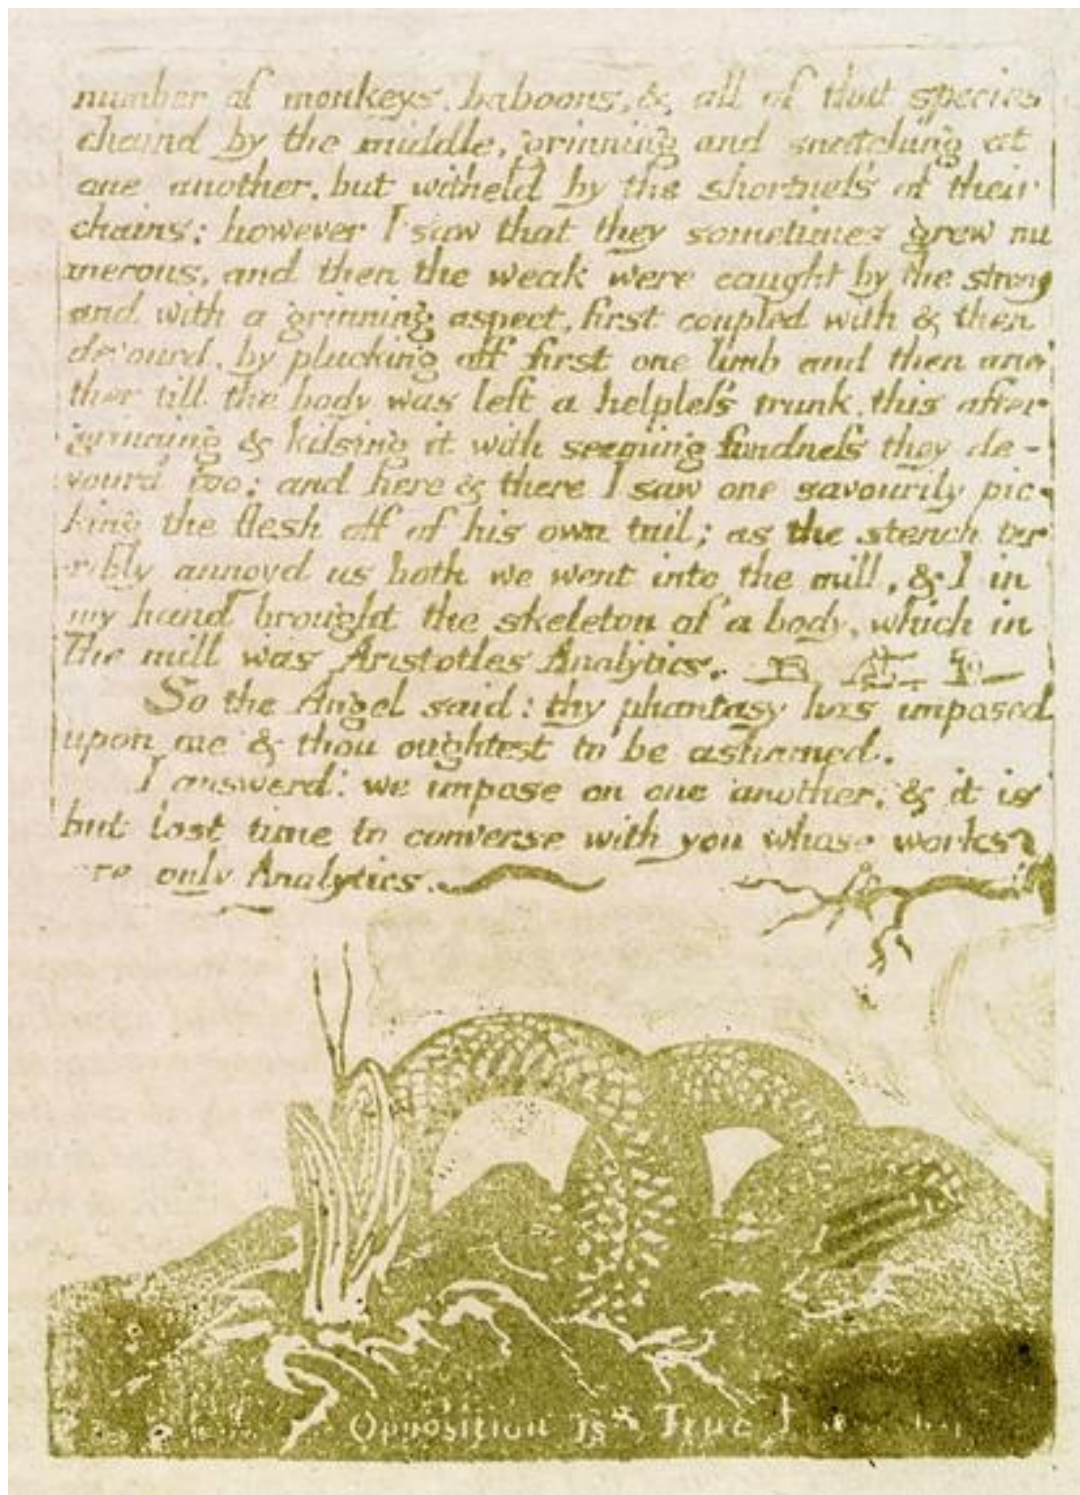 number of monkeys, baboons, & all of that species
chaind by the middle, grinning and snatching at
one another, but witheld by the shortness of their
chains: however I saw that they sometimes grew nu
merous, and then the weak were caught by the strong
and with a grinning aspect, first coupled with & then
devourd, by plucking off first one limb and then ano
ther till the body was left a helpless trunk, this after
grinning & kissing it with seeming fondness they de-
vourd too; and here & there I saw one savourily pic-
king the flesh off of his own tail; as the stench ter
ribly annoyd us both we went into the mill, & I in
my hand brought the skeleton of a body, which in
the mill was Aristotles Analytics.
So the Angel said: thy phantasy has imposed
upon me & thou oughtest to be ashamed.
I answerd: we impose on one another, & it is
but lost time to converse with you whose works
are only Analytics.
Opposition is True